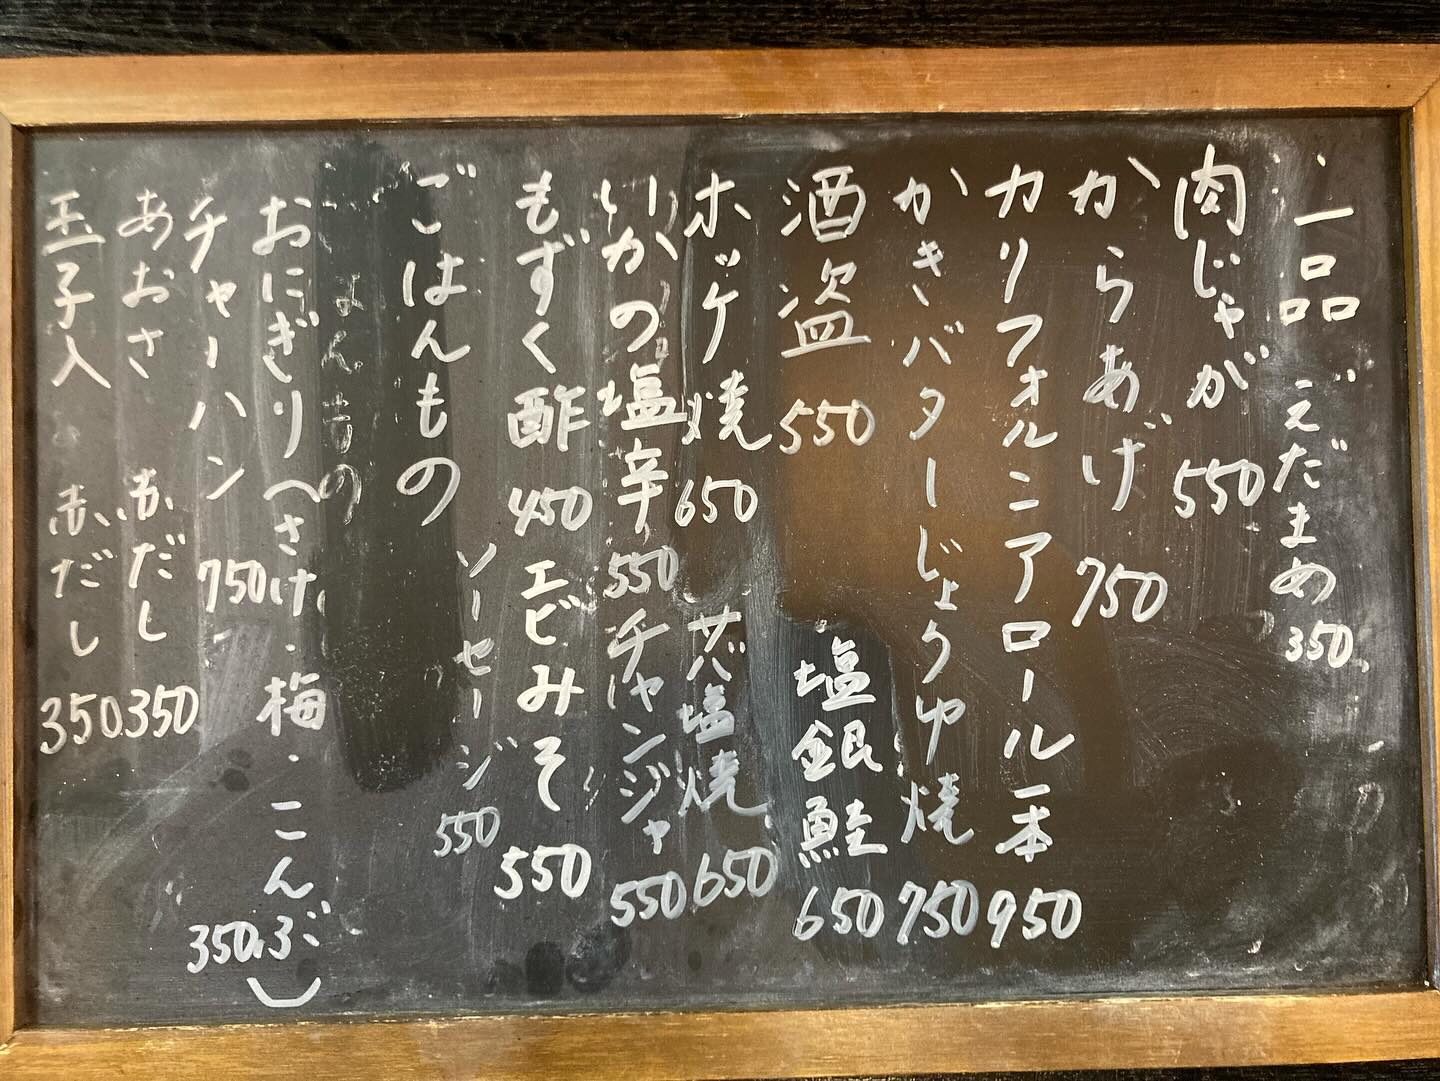 一品 えだまめ 350
肉じゃが 550
からあげ 750
カリフォルニアロール一本 950
かきバターじょうゆ焼 750
酒盗 550 塩銀鮭 650
ホッケ焼 650 サバ塩焼 650
いかの塩辛 550 チャンジャ 550
もずく酢 450 エビみそ 550
ソーセージ 550
ごはんもの
おにぎり(さけ・梅・こんぶ) 350
チャーハン 750
あおさ 赤だし 350
玉子入 赤だし 350